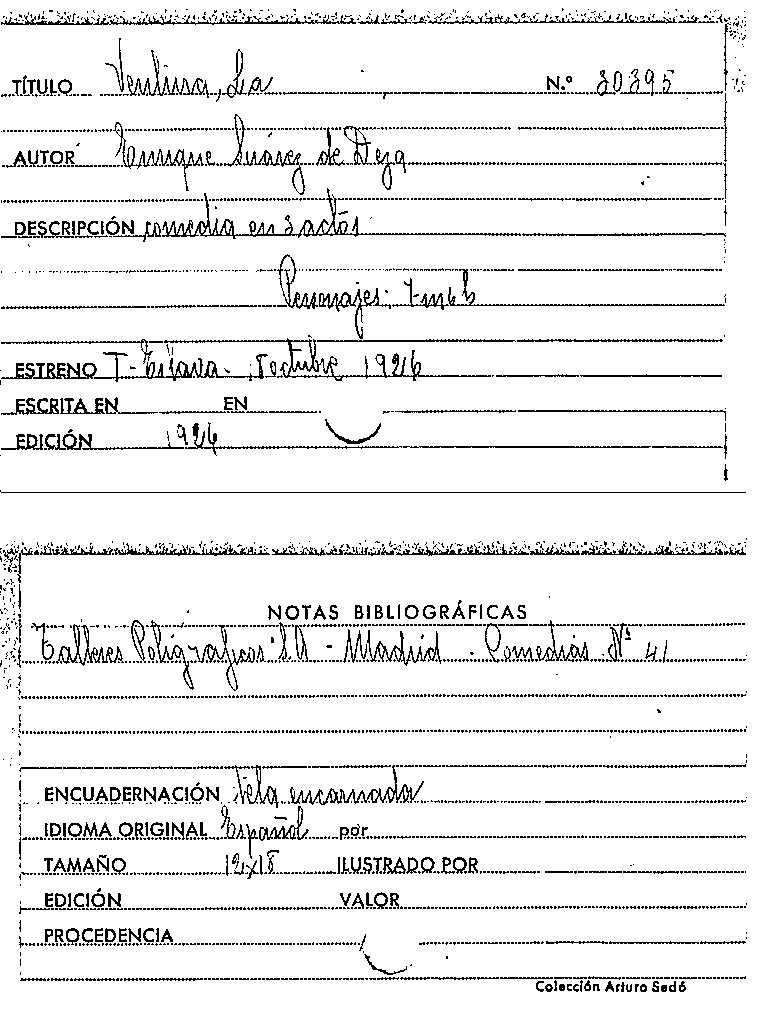 TÍTULO Ventura, La N.º 30395
AUTOR Enrique Suárez de Deza
DESCRIPCIÓN comedia en 3 actos
Personajes: 7 m 6 h
ESTRENO T- Eslava- octubre 1926
ESCRITA EN EN
EDICIÓN 1926
NOTAS BIBLIOGRÁFICAS
Talleres Poligraficos S.A - Madrid - Comedias Nº 41
ENCUADERNACIÓN tela encarnada
IDIOMA ORIGINAL Español por
TAMAÑO 12x18 ILUSTRADO POR
EDICIÓN VALOR
PROCEDENCIA
Colección Arturo Sedó